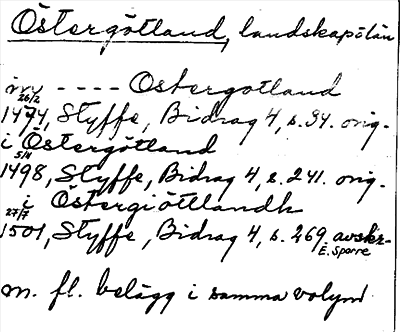 Östergötland, landskap o län
inv ---- Ostergotland
26/2
1474, Styffe, Bidrag 4, s. 94. orig.
i Östergötland
5/4
1498, Styffe, Bidrag 4, s. 241. orig.
i Östergiöttlandh
27/7
1501, Styffe, Bidrag 4, s. 269 avskr.
E. Sparre
m. fl. belägg i samma volym